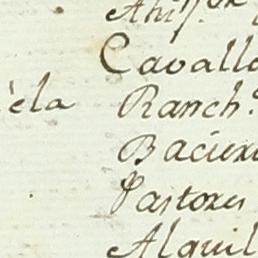 Cavall
èla Ranch.
Bacier
Pastores
Alquil